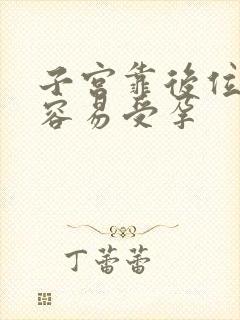 子宫靠後位
容易受孕
丁蕾蕾